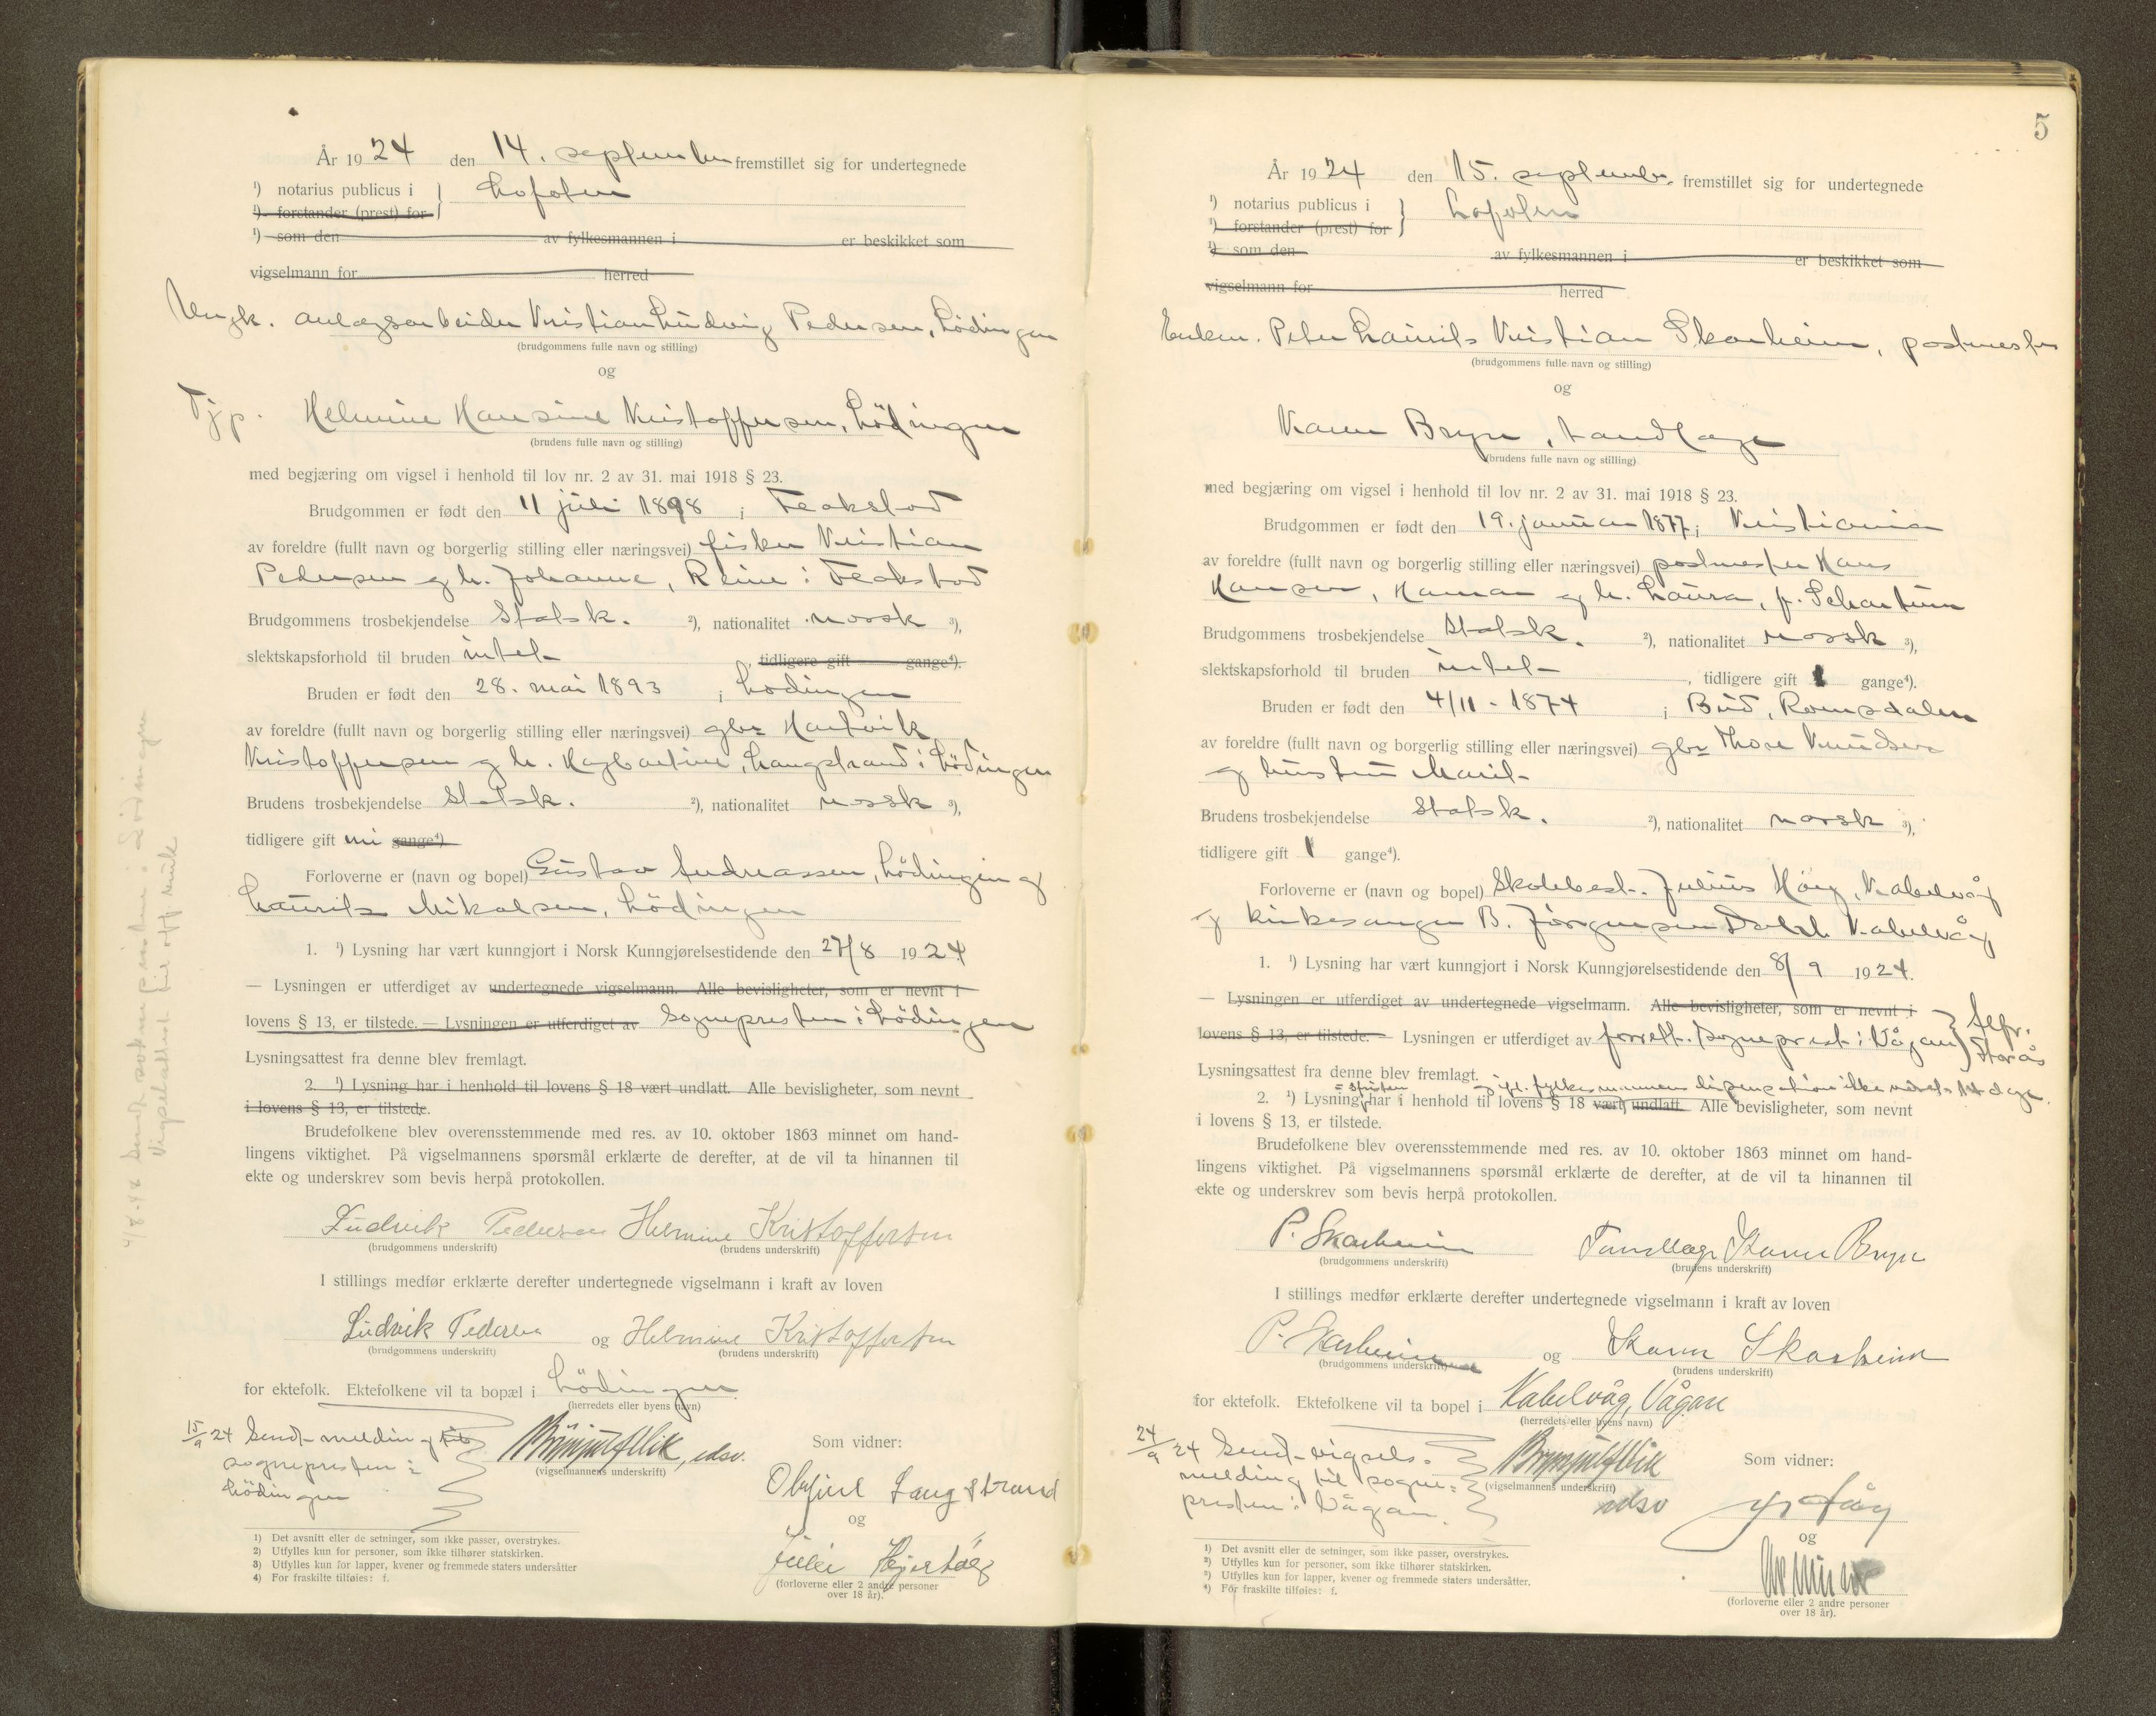 År 1924 den 14. september fremstillet sig for undertegnede
¹) notarius publicus i } Lofoten
¹) forstander (prest) for
¹) som den av fylkesmannen i er beskikket som
vigselmann for herred
Ungk. anlægsarbeider Kristian Ludvig Pedersen, Lödingen
(brudgommens fulle navn og stilling)
og
Helmine Hansine Kristoffersen, Lödingen
(brudens fulle navn og stilling)
med begjæring om vigsel i henhold til lov nr. 2 av 31. mai 1918 § 23.
Brudgommen er født den 11 juli 1898 i Flakstad
av foreldre (fullt navn og borgerlig stilling eller næringsvei) fisker Kristian
Pedersen og h. Johanne, Reine i Flakstad
Brudgommens trosbekjendelse Statsk. ²), nationalitet norsk ³),
slektskapsforhold til bruden intet , tidligere gift gange⁴).
Bruden er født den 28. mai 1893 i Lodingen
av foreldre (fullt navn og borgerlig stilling eller næringsvei) gbr Hartvik
Kristoffersen og h. Hagbartine, Langstrand i Lödingen
Brudens trosbekjendelse Statsk. ²), nationalitet norsk ³),
tidligere gift gange⁴)
Forloverne er (navn og bopel) Gustav Andreassen, Lödingen og
Laurits Mikalsen, Lödingen
1. ¹) Lysning har vært kunngjort i Norsk Kunngjørelsestidende den 27/8 1924
— Lysningen er utferdiget av undertegnede vigselmann. Alle bevisligheter, som er nevnt i
lovens § 13, er tilstede. — Lysningen er utferdiget av Sognepresten i Lödingen
Lysningsattest fra denne blev fremlagt.
2. ¹) Lysning har i henhold til lovens § 18 vært undlatt. Alle bevisligheter, som nevnt
i lovens § 13, er tilstede.
Brudefolkene blev overensstemmende med res. av 10. oktober 1863 minnet om hand-
lingens viktighet. På vigselmannens spørsmål erklærte de derefter, at de vil ta hinannen til
ekte og underskrev som bevis herpå protokollen.
Ludvik Pedersen Helmine Kristoffersen
(brudgommens underskrift) (brudens underskrift)
I stillings medfør erklærte derefter undertegnede vigselmann i kraft av loven
Ludvik Pedersen og Helmine Kristoffersen
(brudgommens underskrift) (brudens underskrift)
for ektefolk. Ektefolkene vil ta bopæl i Lödingen
(herredets eller byens navn)
15/9 24 Sendt melding til
sognepresten i
Lödingen
(vigselmannens underskrift)
Som vidner:
Langstrand
og
(forloverne eller 2 andre personer
over 18 år).
¹) Det avsnitt eller de setninger, som ikke passer, overstrykes.
²) Utfylles kun for personer, som ikke tilhører statskirken.
³) Utfylles kun for lapper, kvener og fremmede staters undersåtter
⁴) For fraskilte tilføies: f.
4/8-48 Sendt soknepresten i Lödingen
Vigselattest
5
År 1924 den 15. september fremstillet sig for undertegnede
¹) notarius publicus i } Lofoten
¹) forstander (prest) for
¹) som den av fylkesmannen i er beskikket som
vigselmann for herred
Enkem. Peter Laurits Kristian Skarheim, postmester
(brudgommens fulle navn og stilling)
og
Karen Bryn, tandlæge
(brudens fulle navn og stilling)
med begjæring om vigsel i henhold til lov nr. 2 av 31. mai 1918 § 23.
Brudgommen er født den 19. januar 1877 i Kristiania
av foreldre (fullt navn og borgerlig stilling eller næringsvei) postmester Hans
Hansen, Hamar og h. Laura, f. Schartum
Brudgommens trosbekjendelse Statsk. ²), nationalitet norsk ³),
slektskapsforhold til bruden intet , tidligere gift 1 gange⁴).
Bruden er født den 4/11 - 1874 i Bud, Romsdalen
av foreldre (fullt navn og borgerlig stilling eller næringsvei) gbr Thore Knudsen
og hustru Marit
Brudens trosbekjendelse Statsk. ²), nationalitet norsk ³),
tidligere gift 1 gange⁴).
Forloverne er (navn og bopel) Skolebest. Julius Höeg, Kabelvåg
og kirkesanger B. Jörgensen Kabelvåg
1. ¹) Lysning har vært kunngjort i Norsk Kunngjørelsestidende den 8/9 1924.
— Lysningen er utferdiget av undertegnede vigselmann. Alle bevisligheter, som er nevnt i
lovens § 13, er tilstede. — Lysningen er utferdiget av forrett. sogneprest i Vågan } Alfr. Storås
Lysningsattest fra denne blev fremlagt.
= fristen er jfl. fylkesmannens dispensation ikke 14 dage.
2. ¹) Lysning har i henhold til lovens § 18 vært undlatt. Alle bevisligheter, som nevnt
i lovens § 13, er tilstede.
Brudefolkene blev overensstemmende med res. av 10. oktober 1863 minnet om hand-
lingens viktighet. På vigselmannens spørsmål erklærte de derefter, at de vil ta hinannen til
ekte og underskrev som bevis herpå protokollen.
P. Skarheim Tandlæge Karen Bryn
(brudgommens underskrift) (brudens underskrift)
I stillings medfør erklærte derefter undertegnede vigselmann i kraft av loven
P. Skarheim og Karen Skarheim
(brudgommens underskrift) (brudens underskrift)
for ektefolk. Ektefolkene vil ta bopel i Kabelvåg, Vågan
(herredets eller byens navn)
24/9 24 Sendt vigsels-
melding til sogne-
presten i Vågan.
(vigselmannens underskrift)
Som vidner:
og
(forloverne eller 2 andre personer
over 18 år).
¹) Det avsnitt eller de setninger, som ikke passer, overstrykes.
²) Utfylles kun for personer, som ikke tilhører statskirken.
³) Utfylles kun for lapper, kvener og fremmede staters undersåtter.
⁴) For fraskilte tilføies: f.